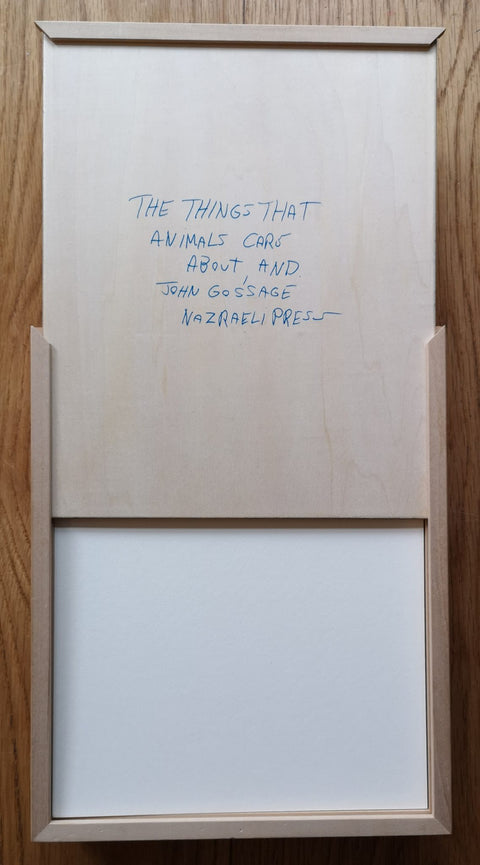 THE THINGS THAT
ANIMALS CARE
ABOUT, AND
JOHN GOSSAGE
NAZRAELI PRESS